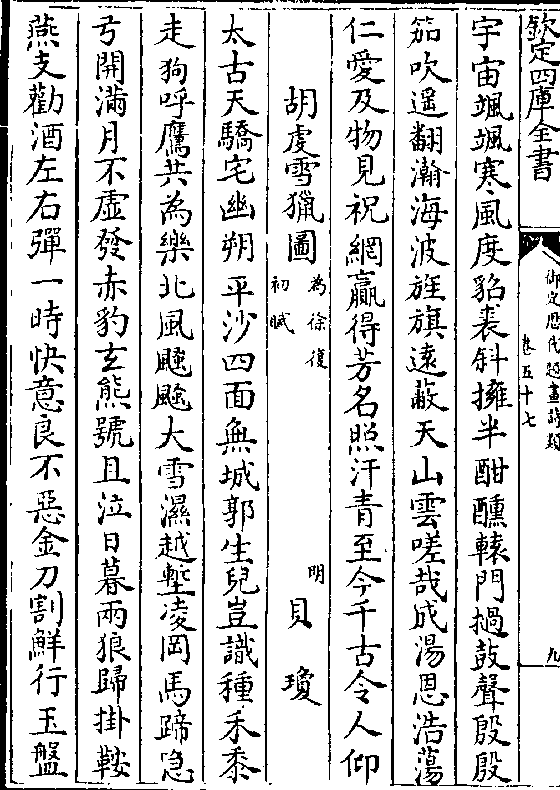 欽定四庫全書
御定歷代題畫詩類
卷五十七
九
宇宙颯颯寒風度貂裘斜擁半酣醺轅門撾鼓聲殷殷
笳吹遥翻瀚海波旌旗遠蔽天山雲嗟哉成湯恩浩蕩
仁愛及物見祝網贏得芳名照汗青至今千古令人仰
胡虔雪獵圖為徐復初賦 明 貝瓊
太古天驕宅幽朔平沙四面無城郭生兒豈識種禾黍
走狗呼鷹共為樂北風颾颾大雪濕越塹凌岡馬蹄急
弓開滿月不虛發赤豹玄熊號且泣日暮兩狼歸掛鞍
燕支勸酒左右彈一時快意良不惡金刀割鮮行玉盤